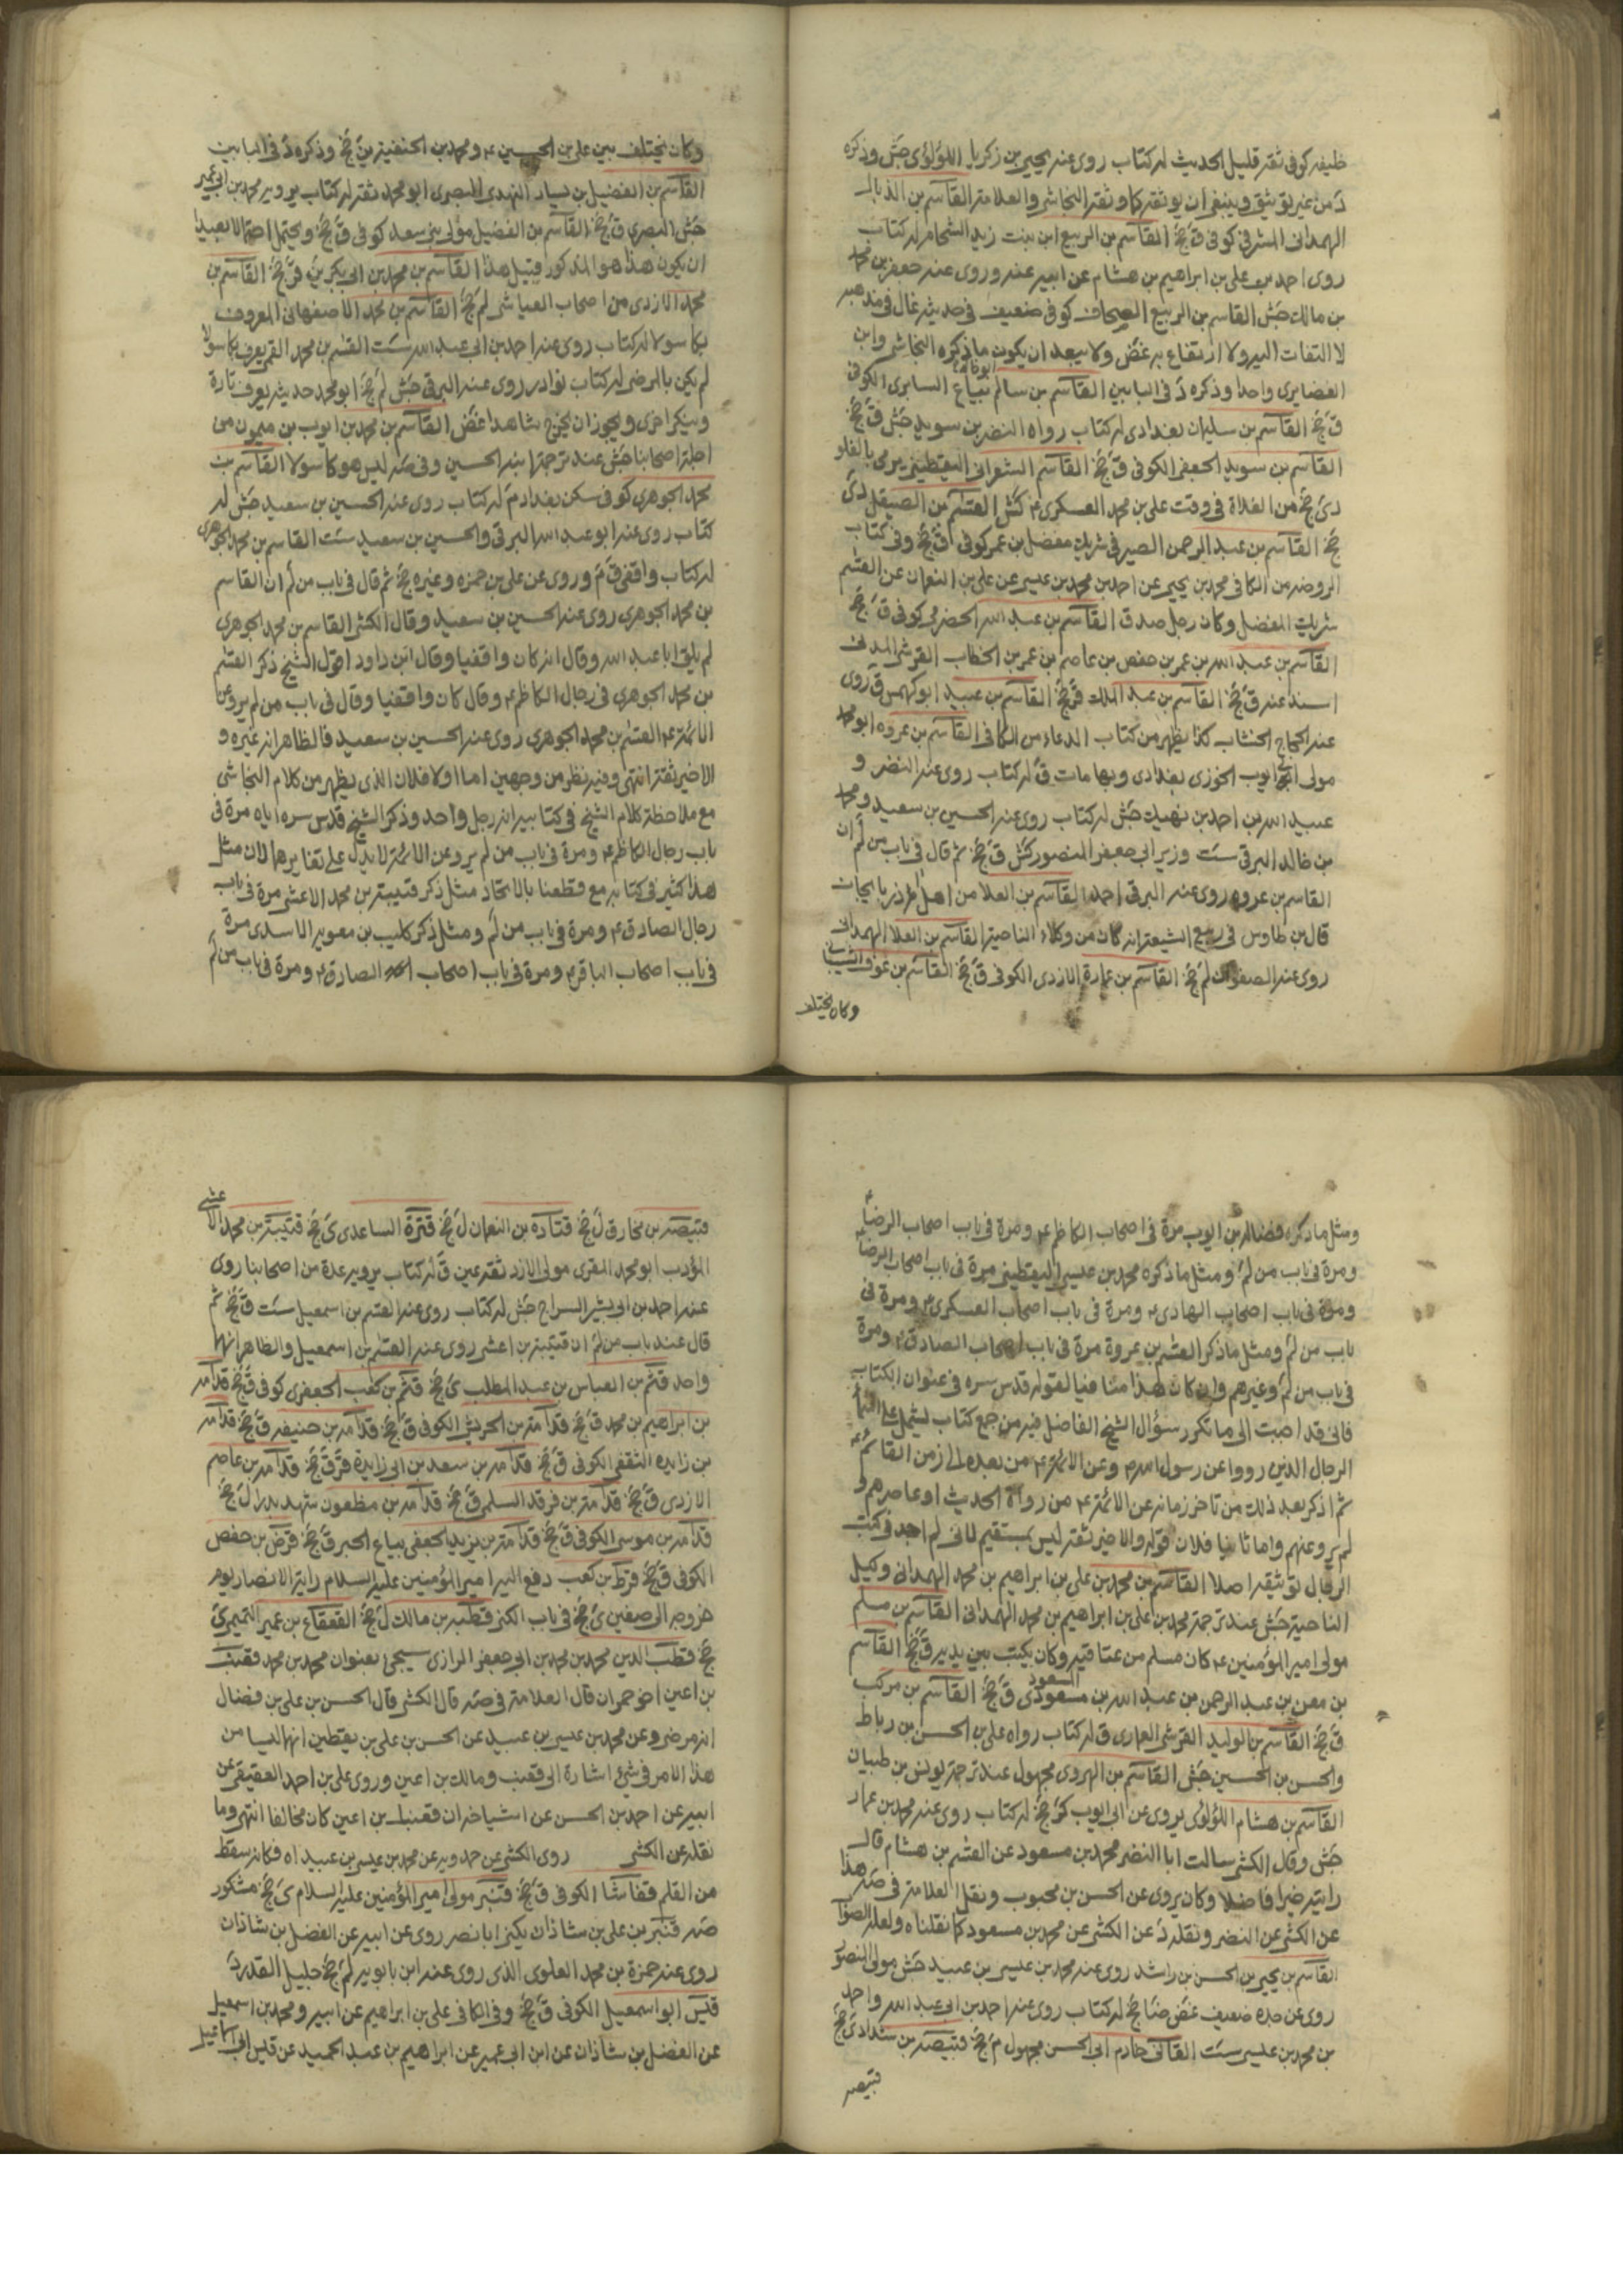 خليفة كوفى ثقة قليل الحديث له كتاب روى عنه يحيى بن زكريا اللؤلؤى جش وذكره
د من غير توثيق وينبغى ان يوثقه كما وثقه النجاشى والعلامة القاسم بن الذيال
الهمدانى المشرقى كوفى ق جخ القاسم بن الربيع ابن بنت زيد الشحام له كتاب
روى احمد بن على بن ابراهيم بن هشام عن ابيه عنه وروى عنه جعفر بن محمد
بن مالك جش القاسم بن الربيع الصحاف كوفى ضعيف فى حديثه غال فى مذهبه
لا التفات اليه ولا ارتفاع به غض ولا يبعد ان يكون ما ذكره النجاشى وابن
الغضايرى واحدا وذكره د فى البابين القاسم بن سالم بياع السابرى الكوفى
ق جخ القاسم بن سليمان بغدادى له كتاب رواه النضر بن سويد جش ق جخ
القاسم بن سويد الجعفى الكوفى ق جخ القاسم الشعرانى اليقطينى يرمى بالغلو
دى جخ من الغلاة فى وقت على بن محمد العسكرى ع كش القسم بن الصيقل دى
جخ القاسم بن عبد الرحمن الصيرفى شريك مفضل بن عمر كوفى ق جخ وفى كتاب
الروضة من الكافى محمد بن يحيى عن احمد بن محمد بن عيسى عن على بن النعمان عن القسم
شريك المفضل وكان رجل صدق القاسم بن عبد الله الحضرمى كوفى ق جخ
القاسم بن عبد الله بن عمر بن حفص بن عاصم بن عمر بن الخطاب القرشى المدنى
اسند عنه ق جخ القاسم بن عبد الملك ق جخ القاسم بن عبيد ابو كهمس ق روى
عنه الحجاج الخشاب كذا يظهر من كتاب الدعاء من الكافى القاسم بن عروه ابو محمد
مولى ابى ايوب الخوزى بغدادى وبها مات ق له كتاب روى عنه النضر و
عبيد الله بن احمد بن نهيك جش له كتاب روى عنه الحسين بن سعيد ومحمد
بن خالد البرقى ست وزير ابى جعفر المنصور كش ق جخ ثم قال فى باب من لم ان
القاسم بن عروه روى عنه البرقى احمد القاسم بن العلا من اهل اذربايجان
قال بن طاوس فى ربيع الشيعة انه كان من وكلاء الناحية القاسم بن العلا الهمدانى
روى عنه الصفوانى لم جخ القاسم بن عمارة الازدى الكوفى ق جخ القاسم بن عوف الشيبانى
وكان يختلف
وكان يختلف بين على بن الحسين ع ومحمد بن الحنفية ين جخ وذكره د فى البابين
القاسم بن الفضيل بن يسار النهدى البصرى ابو محمد ثقة له كتاب يرويه محمد بن ابى عمير
جش البصرى ق جخ القاسم بن الفضيل مولى بنى سعد كوفى ق جخ ويحتمل احتمالا بعيدا
ان يكون هذا هو المذكور قبيل هذا القاسم بن محمد بن ابى بكر ين قر جخ القاسم بن
محمد الازدى من اصحاب العياشى لم جخ القاسم بن محمد الاصفهانى المعروف
بكاسولا له كتاب روى عنه احمد بن ابى عبد الله ست القسم بن محمد القمى يعرف بكاسولا
لم يكن بالمرضى له كتاب نوادر روى عنه البرقى جش لم جخ ابو محمد حديثه يعرف تارة
وينكر اخرى ويجوز ان يخرج شاهدا غض القاسم بن محمد بن ايوب بن ميمون من
اجلة اصحابنا جش عند ترجمة ابنه الحسين وفى صه ليس هو كاسولا القاسم بن
محمد الجوهرى كوفى سكن بغداد م له كتاب روى عنه الحسين بن سعيد جش له
كتاب روى عنه ابو عبد الله البرقى والحسين بن سعيد ست القاسم بن محمد الجوهرى
له كتاب واقفى ق م وروى عن على بن حمزه وغيره جخ ثم قال فى باب من لم ان القاسم
بن محمد الجوهرى روى عنه الحسين بن سعيد وقال الكشى القاسم بن محمد الجوهرى
لم يلق ابا عبد الله وقال انه كان واقفيا وقال ابن داود اقول الشيخ ذكر القسم
بن محمد الجوهرى فى رجال الكاظم ع وقال كان واقفيا وقال فى باب من لم يرو عن
الائمة ع القسم بن محمد الجوهرى روى عنه الحسين بن سعيد فالظاهر انه غيره و
الاخير ثقة انتهى وفيه نظر من وجهين اما اولا فلان الذى يظهر من كلام النجاشى
مع ملاحظة كلام الشيخ فى كتابيه انه رجل واحد وذكر الشيخ قدس سره اياه مرة فى
باب رجال الكاظم ع ومرة فى باب من لم يرو عن الائمة لا يدل على تغايرهما لان مثل
هذا كثير فى كتابه مع قطعنا بالاتحاد مثل ذكر قتيبة بن محمد الاعشى مرة فى باب
رجال الصادق ع ومرة فى باب من لم ومثل ذكر كليب بن معويه الاسدى مرة
فى باب اصحاب الباقر ع ومرة فى باب اصحاب الصادق ع ومرة فى باب من لم
ومثل ما ذكره فضالة بن ايوب مرة فى اصحاب الكاظم ع ومرة فى باب اصحاب الرضا ع
ومرة فى باب من لم ومثل ما ذكره محمد بن عيسى اليقطينى مرة فى باب اصحاب الرضا
ومرة فى باب اصحاب الهادى ع ومرة فى باب اصحاب العسكرى ع ومرة فى
باب من لم ومثل ما ذكر القسم بن عروة مرة فى باب اصحاب الصادق ع ومرة
فى باب من لم وغيرهم وان كان هذا منافيا لقوله قدس سره فى عنوان الكتاب
فانى قد اجبت الى ما تكرر سؤال الشيخ الفاضل فيه من جمع كتاب يشتمل على اسماء
الرجال الذين رووا عن رسول الله ص وعن الائمة ع من بعده الى زمن القائم ع
ثم اذكر بعد ذلك من تاخر زمانه عن الائمة ع من رواة الحديث او عاصرهم و
لم يرو عنهم واما ثانيا فلان قوله والاخير ثقة ليس بمستقيم لانى لم اجد فى كتب
الرجال توثيقه اصلا القاسم بن محمد بن على بن ابراهيم بن محمد الهمدانى وكيل
الناحية جش عند ترجمة محمد بن على بن ابراهيم بن محمد الهمدانى القاسم بن مسلم
مولى امير المؤمنين ع كان مسلم من عتاقته وكان يكتب بين يديه ق جخ القاسم
بن معن بن عبد الرحمن بن عبد الله بن مسعودى المسعود ق جخ القاسم بن مركب
ق جخ القاسم بن الوليد القرشى العمارى ق له كتاب رواه على بن الحسن بن رباط
والحسن بن الحسين جش القاسم بن الهروى مجهول عند ترجمة يونس بن ظبيان
القاسم بن هشام اللؤلؤى يروى عن ابى ايوب كر جخ له كتاب روى عنه محمد بن عمار
جش وقال الكشى سالت ابا النضر محمد بن مسعود عن القسم بن هشام قال
رايته خيرا فاضلا وكان يروى عن الحسن بن محبوب ونقل العلامة فى صه هذا
عن الكشى عن النضر ونقله د عن الكشى عن محمد بن مسعود كما نقلناه ولعله الصواب
القاسم بن يحيى بن الحسن بن راشد روى عنه محمد بن عيسى بن عبيد جش مولى المنصور
روى عن جده ضعيف غض ضا جخ له كتاب روى عنه احمد بن ابى عبد الله واحمد
بن محمد بن عيسى ست القانى خادم ابى الحسن مجهول م جخ قبيصه بن شداد ى جخ
قبيصه
قبيصه بن مخارق ل جخ قتاده بن النعمان ل جخ قترة الساعدى ى جخ قتيبة بن محمد الاعشى
المؤدب ابو محمد المقرى مولى الازد ثقة عين ق له كتاب يرويه عدة من اصحابنا روى
عنه احمد بن ابى بشر السراج جش له كتاب روى عنه القسم بن اسمعيل ست ق جخ ثم
قال عند باب من لم ان قتيبة بن اعشى روى عنه القسم بن اسمعيل والظاهر انهما
واحد قثم بن العباس بن عبد المطلب ى جخ قثم بن كعب الجعفرى كوفى ق جخ قدامه
بن ابراهيم بن محمد ق جخ قدامة بن الحريش الكوفى ق جخ قدامه بن حنيفه ق جخ قدامه
بن زايده الثقفى الكوفى ق جخ قدامه بن سعد بن ابى زايدة قر ق جخ قدامه بن عاصم
الازدى ق جخ قدامة بن فرقد السلمى ق جخ قدامه بن مظعون شهد بدرا ل جخ
قدامه بن موسى الكوفى ق جخ قدامة بن يزيد الجعفى بياع الحبر ق جخ قرض بن حفص
الكوفى ق جخ قرظ بن كعب دفع اليه امير المؤمنين عليه السلام راية الانصار يوم
خروجه الى صفين ى جخ فى باب الكنى قطبه بن مالك ل جخ القعقاع بن عمير التميمى ى
جخ قطب الدين محمد بن محمد بن ابى جعفر الرازى سيجئ بعنوان محمد بن محمد قعنب
بن اعين اخو حمران قال العلامة فى صه قال الكشى قال الحسن بن على بن فضال
انه مرضى وعن محمد بن عيسى بن عبيد عن الحسن بن على بن يقطين انهما ليسا من
هذا الامر فى شئ اشارة الى قعنب ومالك بن اعين وروى على بن احمد العقيقى عن
ابيه عن احمد بن الحسن عن اشياخه ان قعنب بن اعين كان مخالفا انتهى وما
نقله عن الكشى روى الكشى عن حمدويه عن محمد بن عيسى بن عبيد اه فكانه سقط
من القلم قفاشا الكوفى ق جخ قنبر مولى امير المؤمنين عليه السلام ى جخ مشكور
صه قنبر بن على بن شاذان يكنى ابا نصر روى عن ابيه عن الفضل بن شاذان
روى عنه حمزة بن محمد العلوى الذى روى عنه ابن بابويه لم جخ جليل القدر د
قيس ابو اسمعيل الكوفى ق جخ وفى الكافى على بن ابراهيم عن ابيه ومحمد بن اسمعيل
عن الفضل بن شاذان عن ابن ابى عمير عن ابراهيم بن عبد الحميد عن قيس ابى اسماعيل